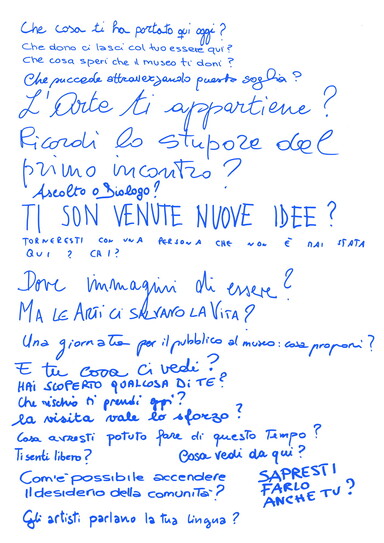 Che cosa ti ha portato qui oggi?
Che dono ci lasci col tuo essere qui?
Che cosa speri che il museo ti doni?
Che succede attraversando questa soglia?
L'Arte ti appartiene?
Ricordi lo stupore del
primo incontro?
Ascolto o Dialogo?
TI SON VENUTE NUOVE IDEE?
TORNERESTI CON UNA PERSONA CHE NON È MAI STATA
QUI? CHI?
Dove immagini di essere?
MA LE ARTI CI SALVANO LA VITA?
Una giornata per il pubblico al museo: cosa proponi?
E tu cosa ci vedi?
HAI SCOPERTO QUALCOSA DI TE?
Che rischio ti prendi oggi?
la visita vale lo sforzo?
Cosa avresti potuto fare di questo Tempo?
Ti senti libero? Cosa vedi da qui?
Com'è possibile accendere
il desiderio della comunità?
SAPRESTI
FARLO
ANCHE TU?
Gli artisti parlano la tua lingua?